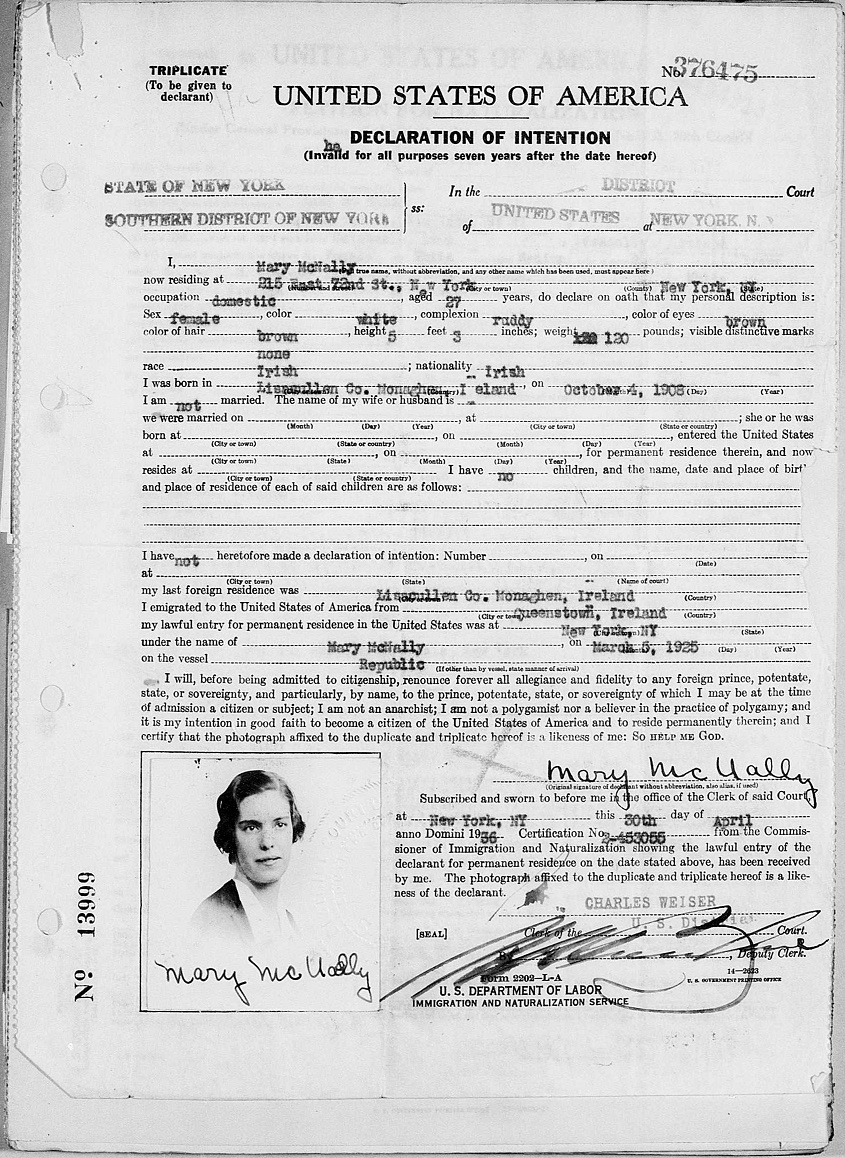 TRIPLICATE
(To be given to
declarant)
No. 376475
UNITED STATES OF AMERICA
DECLARATION OF INTENTION
ha
(Invalid for all purposes seven years after the date hereof)
STATE OF NEW YORK
SOUTHERN DISTRICT OF NEW YORK
ss:
In the DISTRICT Court
of UNITED STATES at NEW YORK, N.
I, Mary McNally
true name, without abbreviation, and any other name which has been used, must appear here)
now residing at 215 East 72nd St., New York New York, NY
(Number and street) (City or town) (County) (State)
occupation domestic, aged 27 years, do declare on oath that my personal description is:
Sex female, color white, complexion ruddy, color of eyes brown
color of hair brown, height 5 feet 3 inches; weight 120 pounds; visible distinctive marks
none
race Irish; nationality Irish
I was born in Lisacullen Co. Monaghen, I eland, on October 4, 1908
(Day) (Year)
I am not married. The name of my wife or husband is
we were married on , at ; she or he was
(Month) (Day) (Year) (City or town) (State or country)
born at , on , entered the United States
(City or town) (State or country) (Month) (Day) (Year)
at , on , for permanent residence therein, and now
(City or town) (State) (Month) (Day) (Year)
resides at I have no children, and the name, date and place of birt
(City or town) (State or country)
and place of residence of each of said children are as follows:
I have not heretofore made a declaration of intention: Number , on
(Date)
at
(City or town) (State) (Name of court)
my last foreign residence was Lisacullen Co. Monaghen, Ireland
(Country)
I emigrated to the United States of America from Queenstown, Ireland
(City or town) (Country)
my lawful entry for permanent residence in the United States was at New York, NY
(State)
under the name of Mary McNally, on March 5, 1925
(Day) (Year)
on the vessel Republic
(If other than by vessel, state manner of arrival)
I will, before being admitted to citizenship, renounce forever all allegiance and fidelity to any foreign prince, potentate,
state, or sovereignty, and particularly, by name, to the prince, potentate, state, or sovereignty of which I may be at the time
of admission a citizen or subject; I am not an anarchist; I am not a polygamist nor a believer in the practice of polygamy; and
it is my intention in good faith to become a citizen of the United States of America and to reside permanently therein; and I
certify that the photograph affixed to the duplicate and triplicate hereof is a likeness of me: SO HELP ME GOD.
Mary McNally
(Original signature of declarant without abbreviation, also alias, if used)
Subscribed and sworn to before me in the office of the Clerk of said Court,
at New York, NY this 30th day of April
anno Domini 1936 Certification No. 2-453055 from the Commis-
sioner of Immigration and Naturalization showing the lawful entry of the
declarant for permanent residence on the date stated above, has been received
by me. The photograph affixed to the duplicate and triplicate hereof is a like-
ness of the declarant.
CHARLES WEISER
U. S. District
[SEAL]
Clerk of the Court.
By , Deputy Clerk.
Form 2202-L-A
14-2623
U. S. GOVERNMENT PRINTING OFFICE
U. S. DEPARTMENT OF LABOR
IMMIGRATION AND NATURALIZATION SERVICE
Mary McNally
No 13999